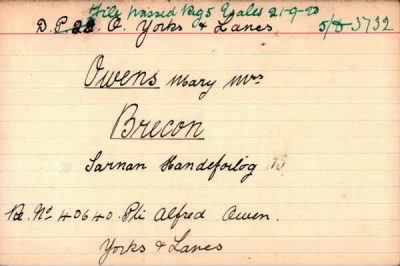 File passed Reg 5 Wales 21-9-20
D.P. 28. O. Yorks & Lancs 5/D 3732
Owens Mary Mrs
Brecon
Sarnan Handefoilog
Re. No 40640. Pte Alfred Owen.
Yorks & Lancs